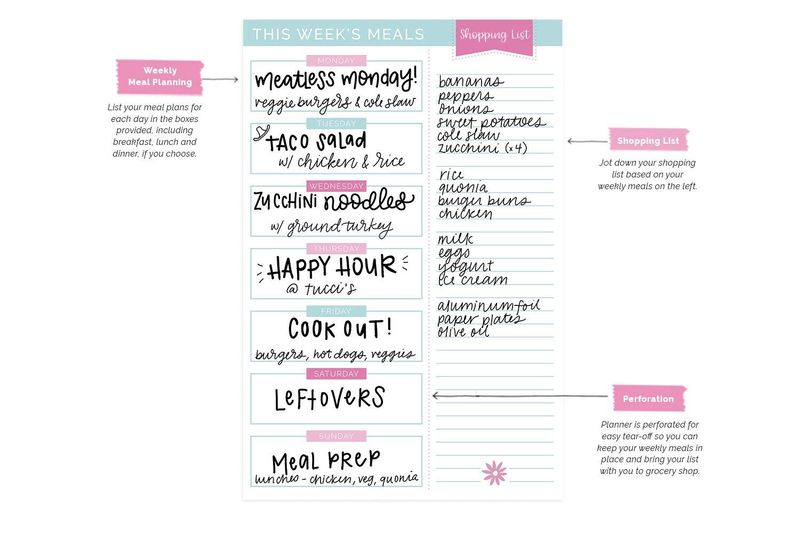 THIS WEEK'S MEALS
Shopping List
Weekly
Meal Planning
List your meal plans for
each day in the boxes
provided, including
breakfast, lunch and
dinner, if you choose.
MONDAY
meatless monday!
veggie burgers & cole slaw
TUESDAY
taco salad
w/ chicken & rice
WEDNESDAY
zucchini noodles
w/ ground turkey
THURSDAY
HAPPY HOUR
@ tucci's
FRIDAY
COOK OUT!
burgers, hot dogs, veggies
SATURDAY
LEFTOVERS
SUNDAY
MEAL PREP
lunches - chicken, veg, quonia
bananas
peppers
onions
sweet potatoes
cole slaw
zucchini (x4)
rice
quonia
burger buns
chicken
milk
eggs
yogurt
ice cream
aluminum foil
paper plates
olive oil
Shopping List
Jot down your shopping
list based on your
weekly meals on the left.
Perforation
Planner is perforated for
easy tear-off so you can
keep your weekly meals in
place and bring your list
with you to grocery shop.